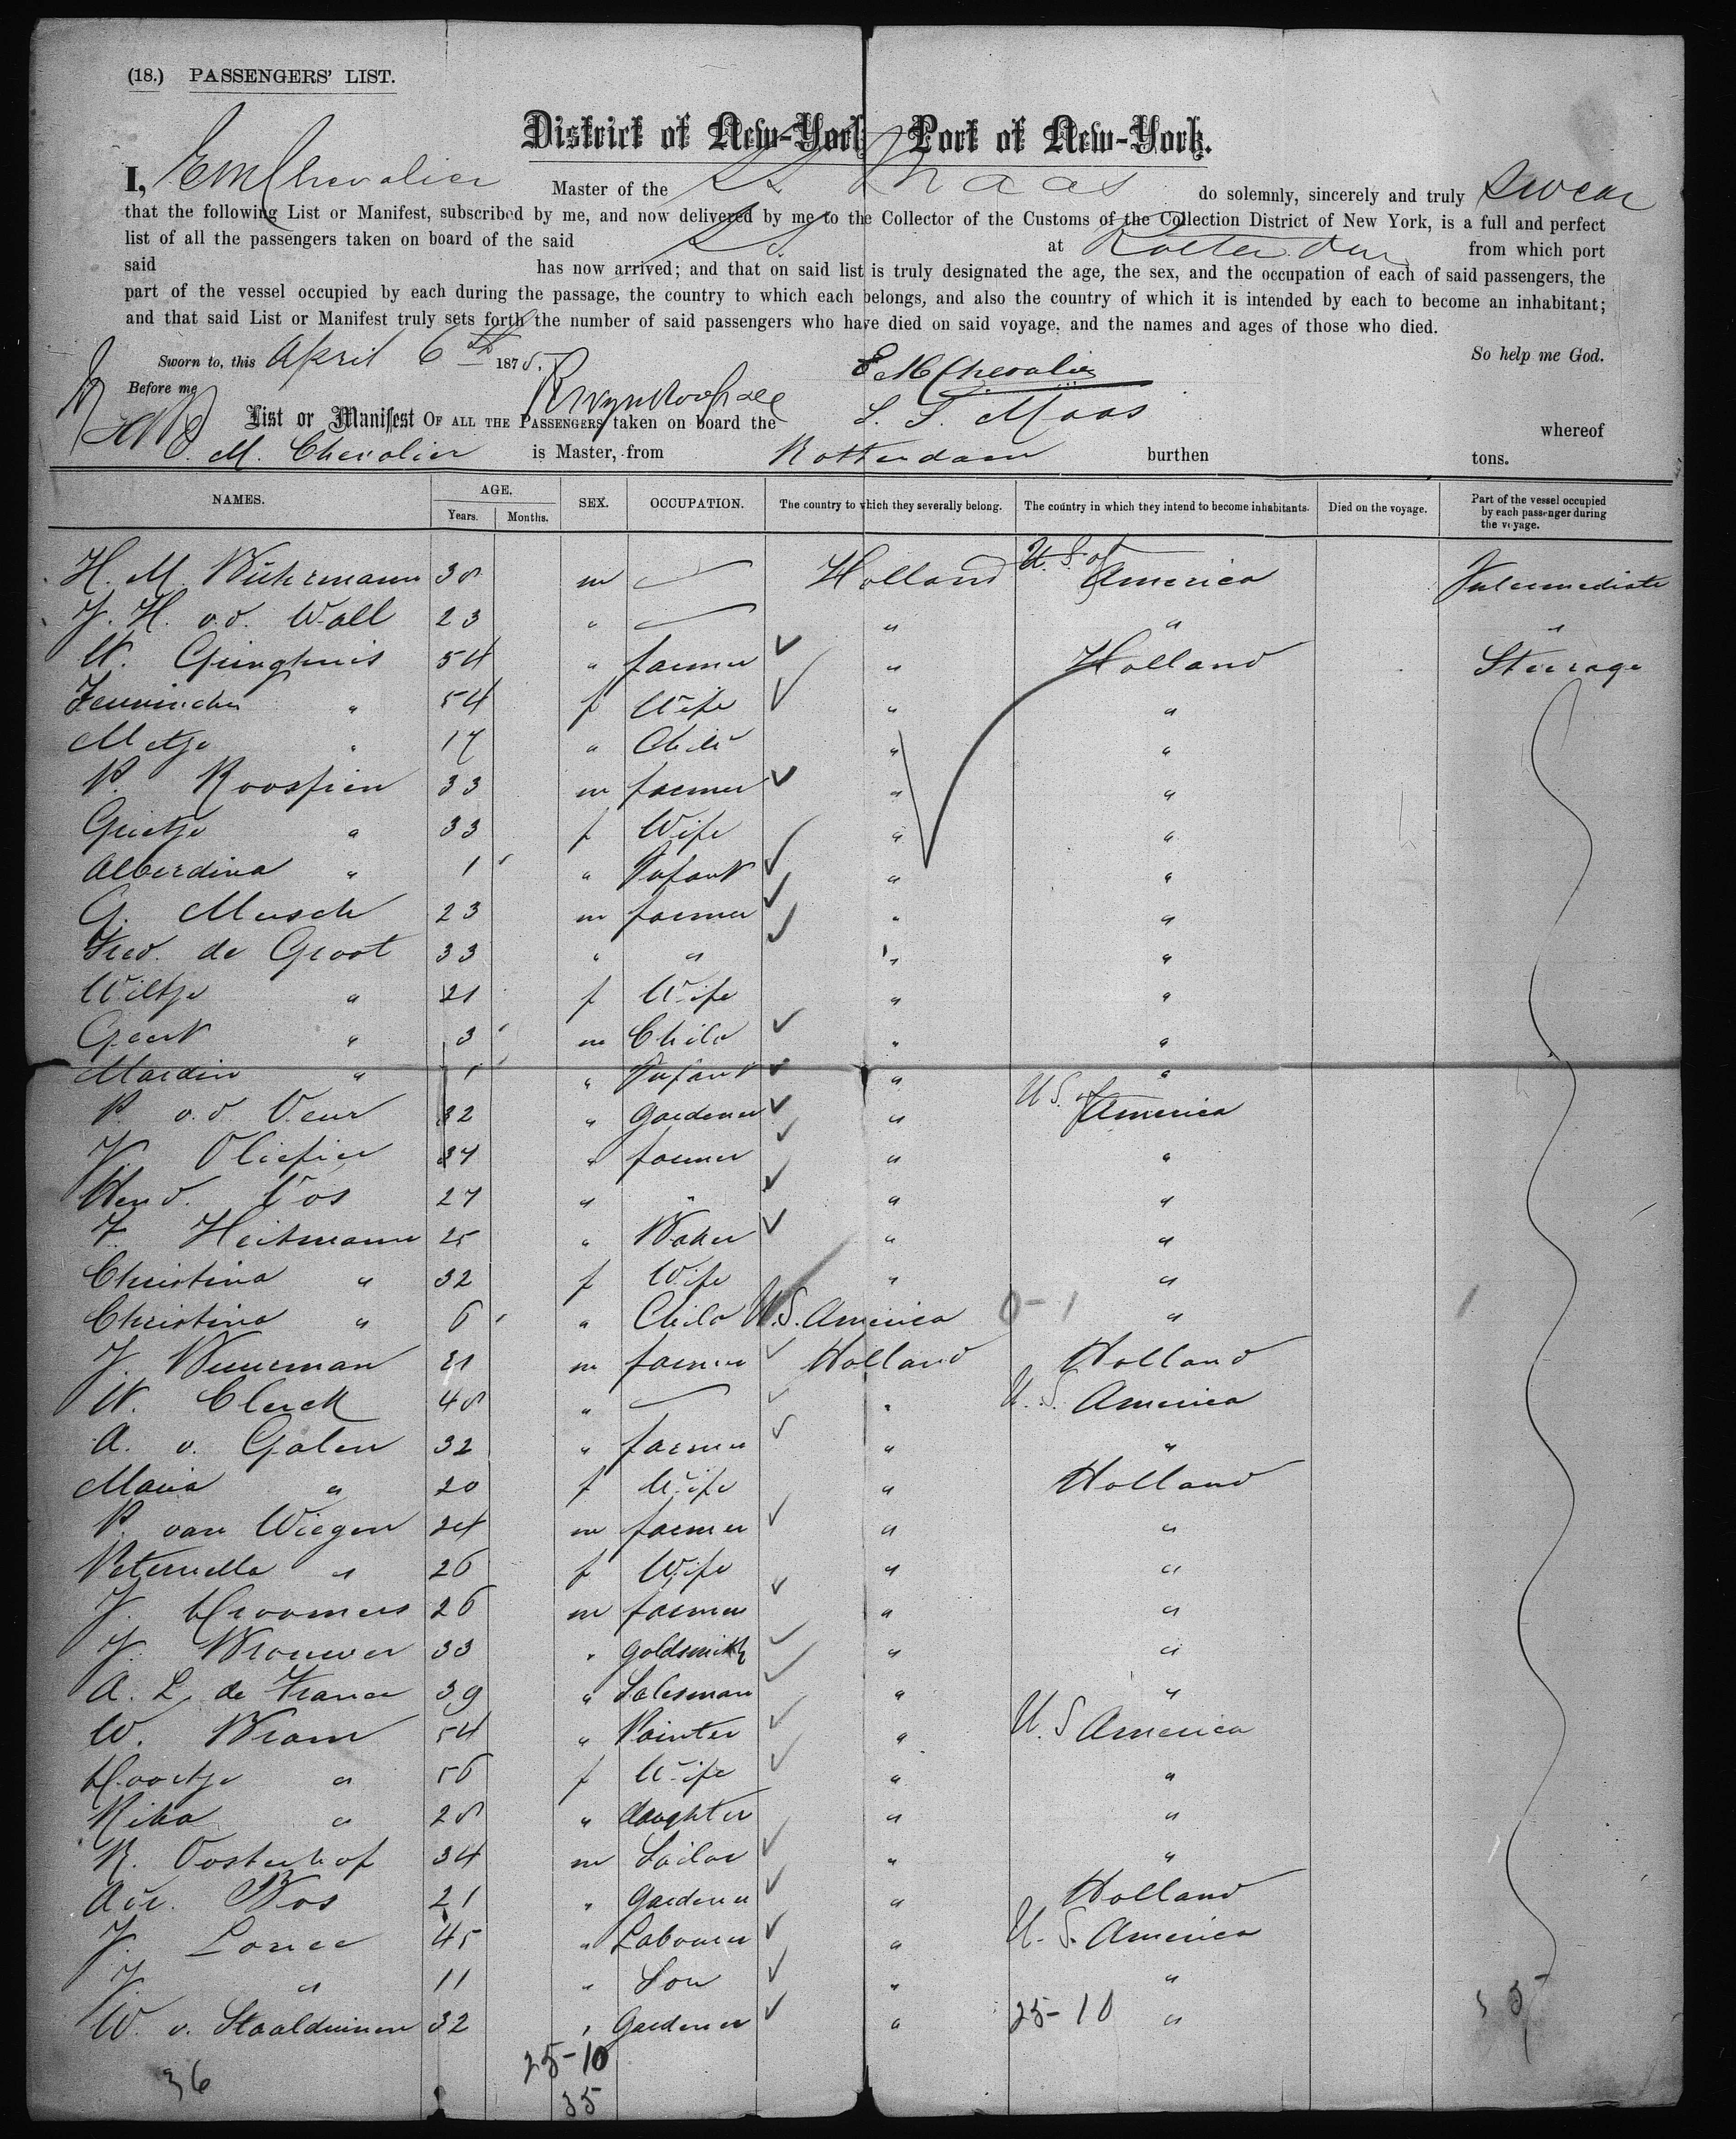 (18.) PASSENGERS' LIST.
District of New-York Port of New-York.
I, EM Chevalier Master of the SS Maas do solemnly, sincerely and truly swear
that the following List or Manifest, subscribed by me, and now delivered by me to the Collector of the Customs of the Collection District of New York, is a full and perfect
list of all the passengers taken on board of the said SS at Rotterdam from which port
said has now arrived; and that on said list is truly designated the age, the sex, and the occupation of each of said passengers, the
part of the vessel occupied by each during the passage, the country to which each belongs, and also the country of which it is intended by each to become an inhabitant;
and that said List or Manifest truly sets forth the number of said passengers who have died on said voyage, and the names and ages of those who died.
Sworn to, this April 6th 187 So help me God.
Before me EM Chevalier
List or Manifest OF ALL THE PASSENGERS taken on board the S. S. Maas whereof
M. Chevalier is Master, from Rotterdam burthen tons.
NAMES. AGE. SEX. OCCUPATION. The country to which they severally belong. The country in which they intend to become inhabitants. Died on the voyage. Part of the vessel occupied by each passenger during the voyage.
Years. Months.
H. M. Bührmann 38 m — Holland U. S. of America Intermediate
J. H. v.d. Wall 23 " — " " "
W. 54 " farmer " Holland Steerage
" 54 f Wife " "
Metje " 17 " Child " "
P. Roossien 33 m farmer " "
Grietje " 33 f Wife " "
Alberdina " 1 " Infant " "
G. Mensch 23 m farmer " "
Fred. de Groot 33 " " " "
Wiltje " 21 f Wife " "
Geert " 3 m Child " "
Mardin " 1 " Infant " "
P. v.d. Veur 32 " Gardener " U S. of America
J. Oliefier 34 " farmer " "
Hend. Vos 27 " " " "
F. Heitmann 25 " Baker " "
Christina " 32 f Wife " "
Christina " 6 " Child U.S. America 0-1 "
J. Buurman 21 m farmer Holland Holland
W. Clerck 48 " — " U. S. America
A. v. Galen 32 " farmer " "
Maria " 20 f Wife " Holland
P. van Wiegen 24 m farmer " "
Peternella " 26 f Wife " "
J. Kroomers 26 m farmer " "
J. Brouwer 33 " Goldsmith " "
A. L. de France 39 " Salesman " "
W. Bram 54 " Painter " U. S America
Kaatje " 56 f Wife " "
Rika " 28 " daughter " "
R. Oosterhof 34 m Sailor " "
Adr. Bos 21 " Gardener " Holland
J. 45 " Labourer " U. S. America
J. " 11 " Son " "
W. v. Staalduinen 32 " Gardener " 25-10 "
25-10
36 35